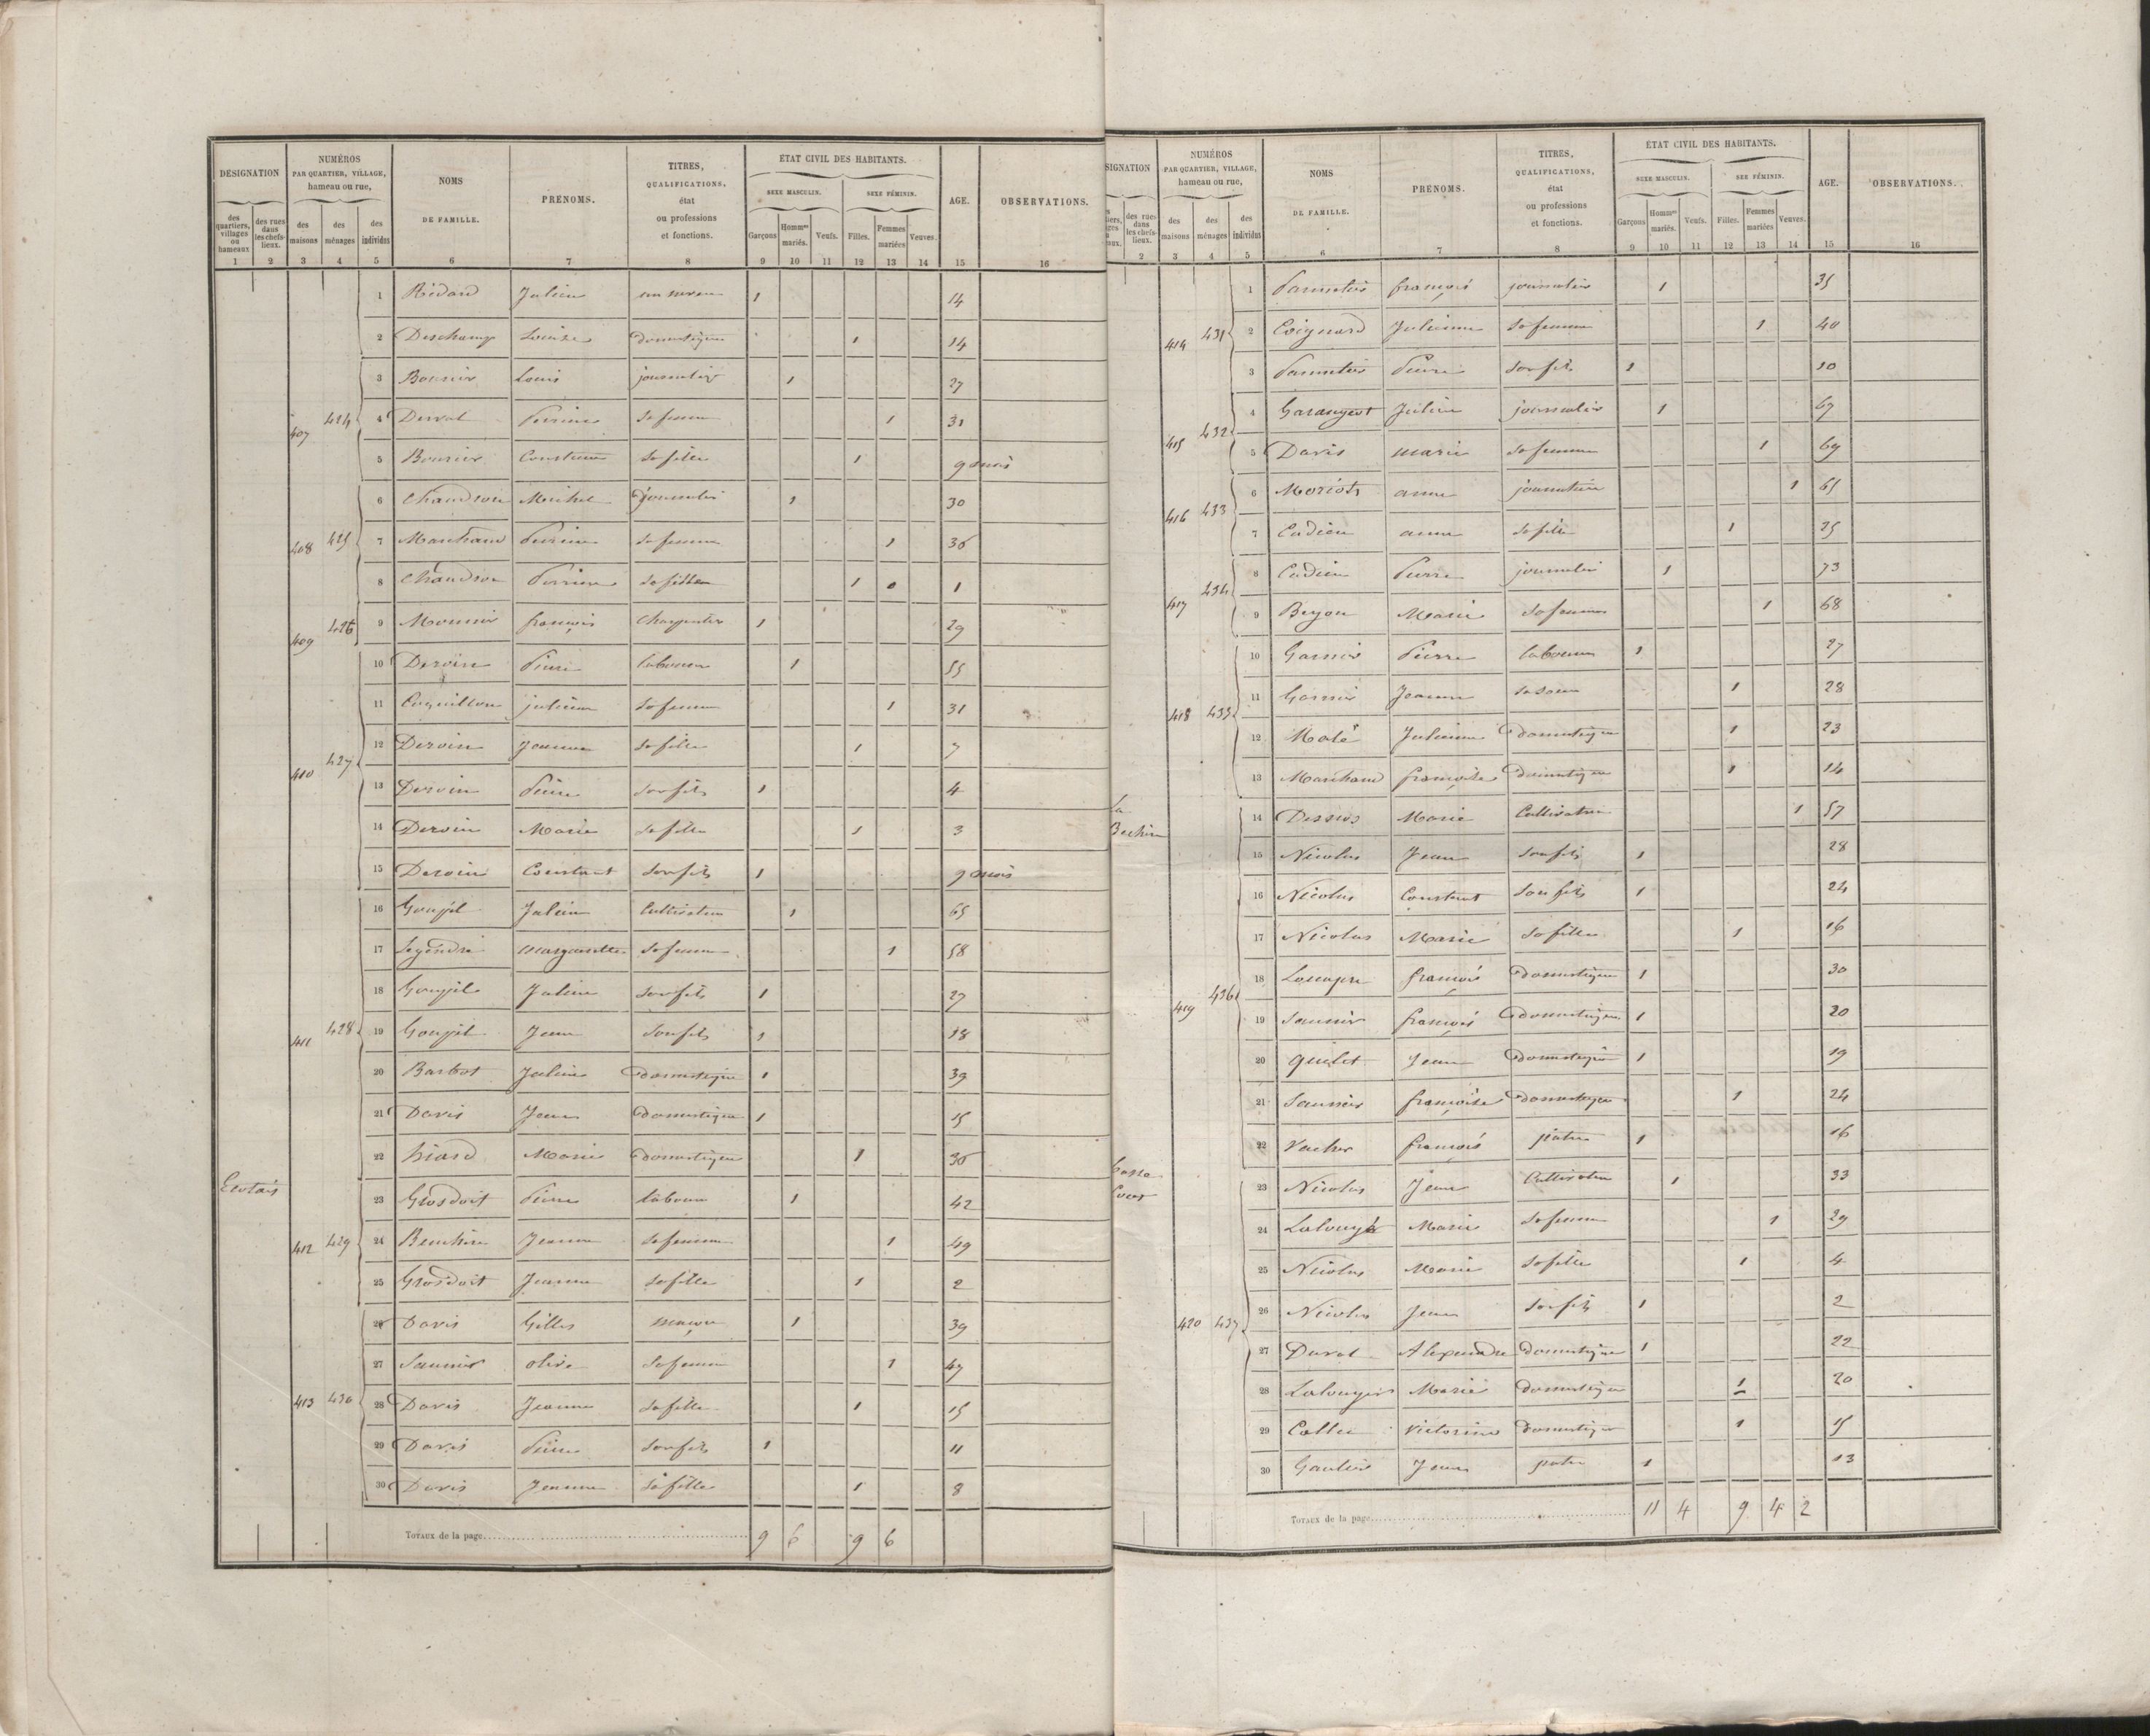 DESIGNATION
NUMÉROS
PAR QUARTIER, VILLAGE,
hameau ou rue,
NOMS
DE FAMILLE.
PRÉNOMS.
TITRES,
QUALIFICATIONS,
état
ou professions
et fonctions.
ÉTAT CIVIL DES HABITANTS.
SEXE MASCULIN.
SEXE FÉMININ.
AGE.
OBSERVATIONS.
des quartiers, villages ou hameaux
des rues dans les chefs-lieux.
des maisons
des ménages
des individus
Garçons
Hommes mariés.
Veufs.
Filles.
Femmes mariées
Veuves.
1 2 3 4 5 6 7 8 9 10 11 12 13 14 15 16
1 Julien 1 14
2 Deschamp Louise domestique 1 14
3 Louis journalier 1 27
407 424 4 Derval Perrine sa femme 1 31
5 sa fille 1 9 mois
6 Chaudron Michel journalier 1 30
408 425 7 Marchand Perrine sa femme 1 36
8 Chaudron Perrine sa fille 1 0 1
409 426 9 Mounier françois Charpentier 1 29
10 Deroin Pierre laboureur 1 55
11 Coquillon julienne sa femme 1 31
410 427 12 Deroin Jeanne sa fille 1 7
13 Deroin Pierre son fils 1 4
14 Deroin Marie sa fille 1 3
15 Deroin Constant son fils 1 9 mois
16 Goupil Julien Cultivateur 1 65
17 Legendre marguerite sa femme 1 58
18 Goupil Julien son fils 1 27
411 428 19 Goupil Jean son fils 1 18
20 Barbot Julien domestique 1 39
21 Davis Jean domestique 1 15
22 hiard Marie domestique 1 36
23 Grosdoit Pierre laboureur 1 42
412 429 24 Jeanne sa femme 1 49
25 Grosdoit Jeanne sa fille 1 2
26 Davis Gilles maçon 1 39
27 Saunier olive sa femme 1 47
413 430 28 Davis Jeanne sa fille 1 15
29 Davis Pierre son fils 1 11
30 Davis Jeanne sa fille 1 8
TOTAUX de la page 9 6 9 6
SIGNATION
NUMÉROS
PAR QUARTIER, VILLAGE,
hameau ou rue,
NOMS
DE FAMILLE.
PRÉNOMS.
TITRES,
QUALIFICATIONS,
état
ou professions
et fonctions.
ÉTAT CIVIL DES HABITANTS.
SEXE MASCULIN.
SEXE FÉMININ.
AGE.
OBSERVATIONS.
des rues dans les chefs-lieux.
des maisons
des ménages
des individus
Garçons
Hommes mariés.
Veufs.
Filles.
Femmes mariées
Veuves.
2 3 4 5 6 7 8 9 10 11 12 13 14 15 16
1 françois journalier 1 35
414 431 2 Coignard Julienne sa femme 1 40
3 Pierre son fils 1 10
4 Garangeot Julien journalier 1 67
415 432 5 Davis marie sa femme 1 69
416 433 6 anne journalière 1 65
7 Cadieu anne sa fille 1 25
417 434 8 Cadieu Pierre journalier 1 73
9 Marie sa femme 1 68
10 Garnier Pierre laboureur 1 27
11 Garnier Jeanne sa soeur 1 28
418 435 12 Malé Julienne domestique 1 23
13 Marchand françoise domestique 1 14
La
14 Marie Cultivatrice 1 57
15 Nicolas Jean son fils 1 28
16 Nicolas Constant son fils 1 24
17 Nicolas Marie sa fille 1 16
419 436 18 françois domestique 1 30
19 Saunier françois domestique 1 20
20 quilet Jean domestique 1 19
21 Saunier françoise domestique 1 24
22 Vacher françois patre 1 16
basse
23 Nicolas Jean Cultivateur 1 33
24 Marie sa femme 1 29
25 Nicolas Marie sa fille 1 4
420 437 26 Nicolas Jean son fils 1 2
27 Alexandre domestique 1 22
28 Marie domestique 1 20
29 Victorine domestique 1 15
30 Gautier Jean patre 1 13
TOTAUX de la page 11 4 9 4 2